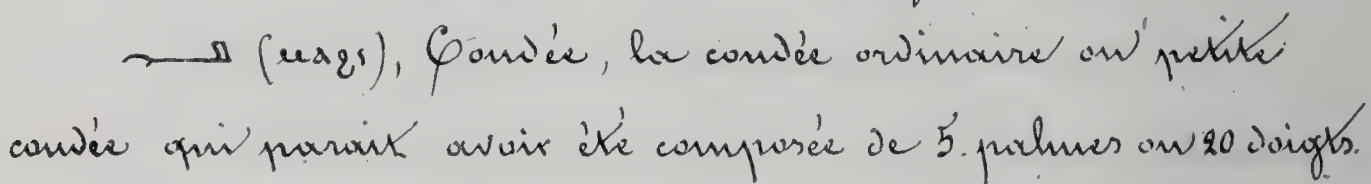 𓂣 (ⲙⲁϩⲓ), Coudée, la coudée ordinaire ou petite
coudée qui parait avoir été composée de 5. palmes ou 20 doigts.